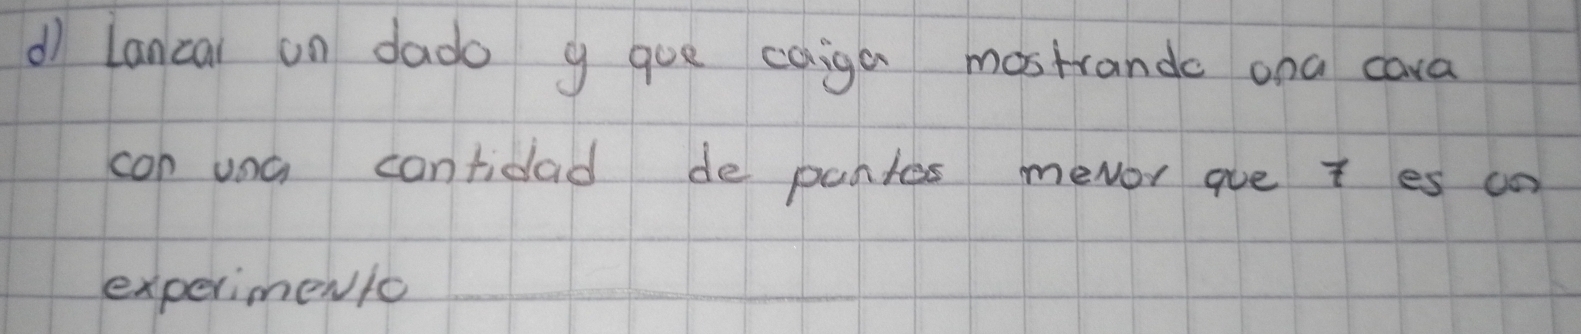 d) Lanzar un dado y que caiga mostrando una cara
con una cantidad de puntos menor que 7 es un
experimento